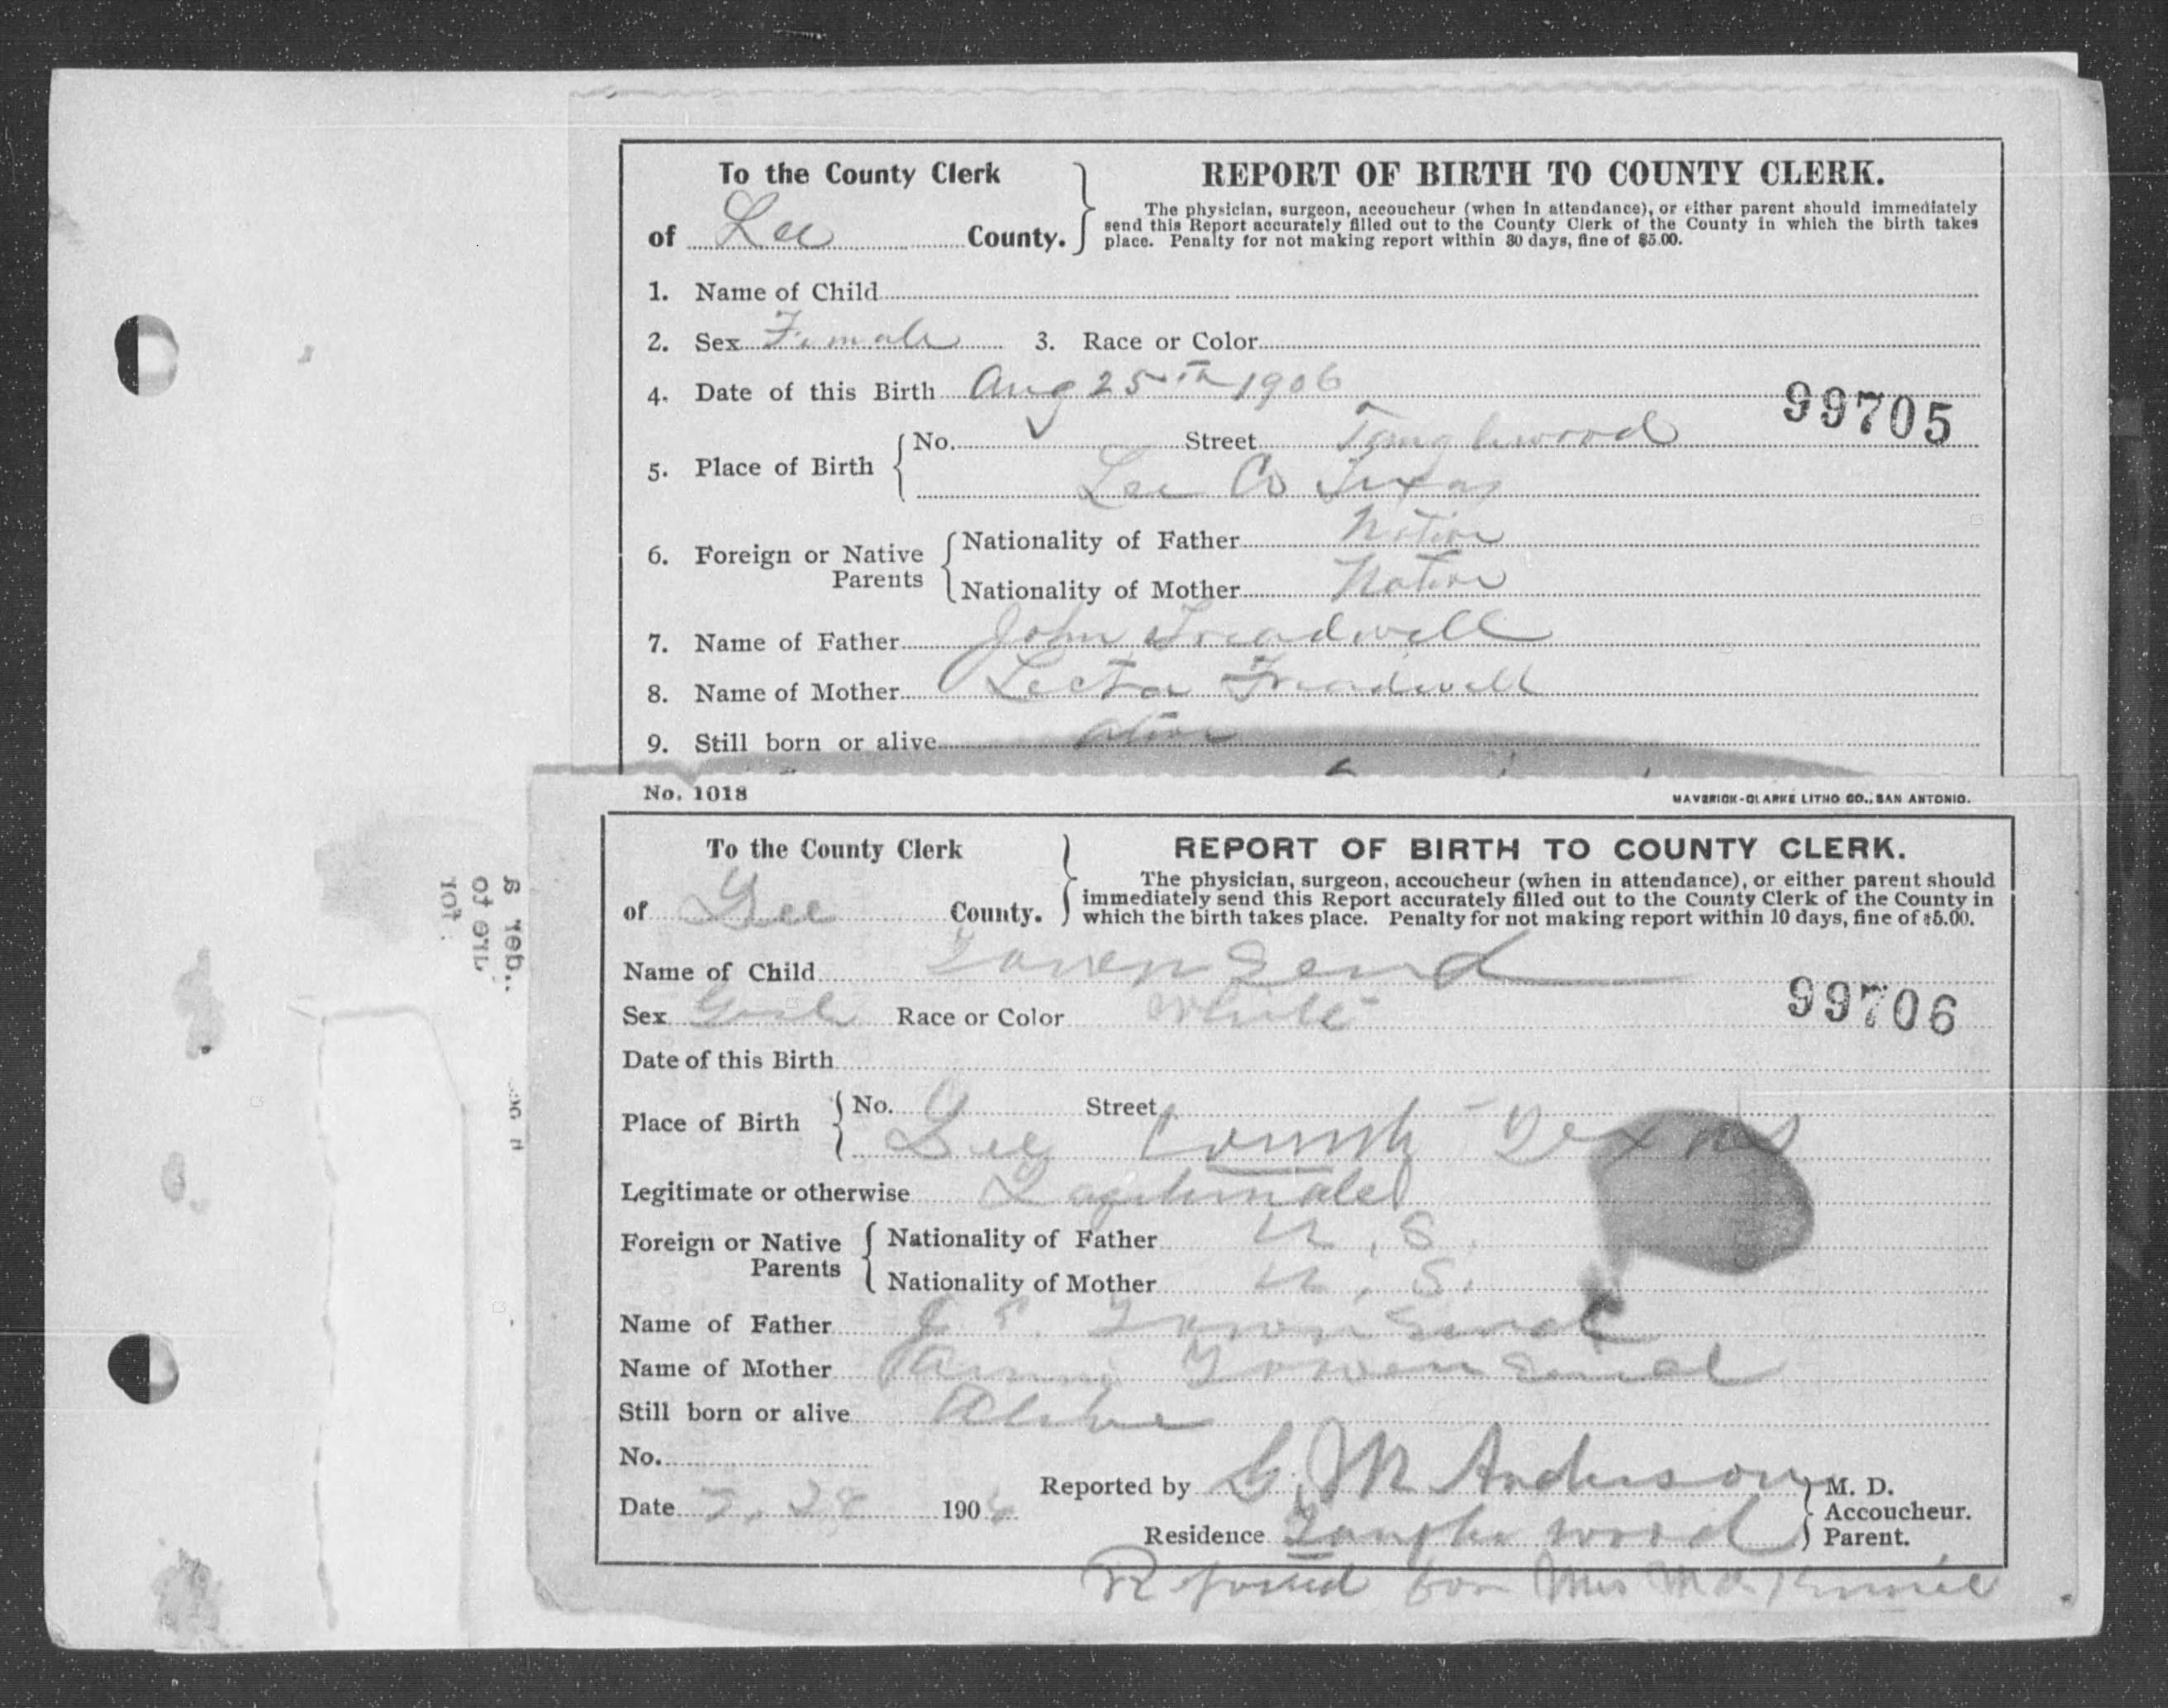 To the County Clerk
of Lee County.
REPORT OF BIRTH TO COUNTY CLERK.
The physician, surgeon, accoucheur (when in attendance), or either parent should immediately
send this Report accurately filled out to the County Clerk of the County in which the birth takes
place. Penalty for not making report within 30 days, fine of $5.00.
1. Name of Child
2. Sex Female 3. Race or Color
4. Date of this Birth Aug 25th 1906
99705
5. Place of Birth No. Street Tanglewood
Lee Co Texas
6. Foreign or Native Parents Nationality of Father Native
Nationality of Mother Native
7. Name of Father John Treadwell
8. Name of Mother Lecta Treadwell
9. Still born or alive alive
No. 1018 MAVERICK-CLARKE LITHO CO., SAN ANTONIO.
To the County Clerk
of Lee County.
REPORT OF BIRTH TO COUNTY CLERK.
The physician, surgeon, accoucheur (when in attendance), or either parent should
immediately send this Report accurately filled out to the County Clerk of the County in
which the birth takes place. Penalty for not making report within 10 days, fine of $5.00.
Name of Child Townsend
Sex Girl Race or Color White
99706
Date of this Birth
Place of Birth No. Street
Lee County Texas
Legitimate or otherwise Lagitimate
Foreign or Native Parents Nationality of Father U. S.
Nationality of Mother U. S.
Name of Father Townsend
Name of Mother Townsend
Still born or alive Alive
No.
Reported by G. M Anderson M. D.
Accoucheur.
Parent.
Date 28 1906
Residence Tanglewood
for Mrs